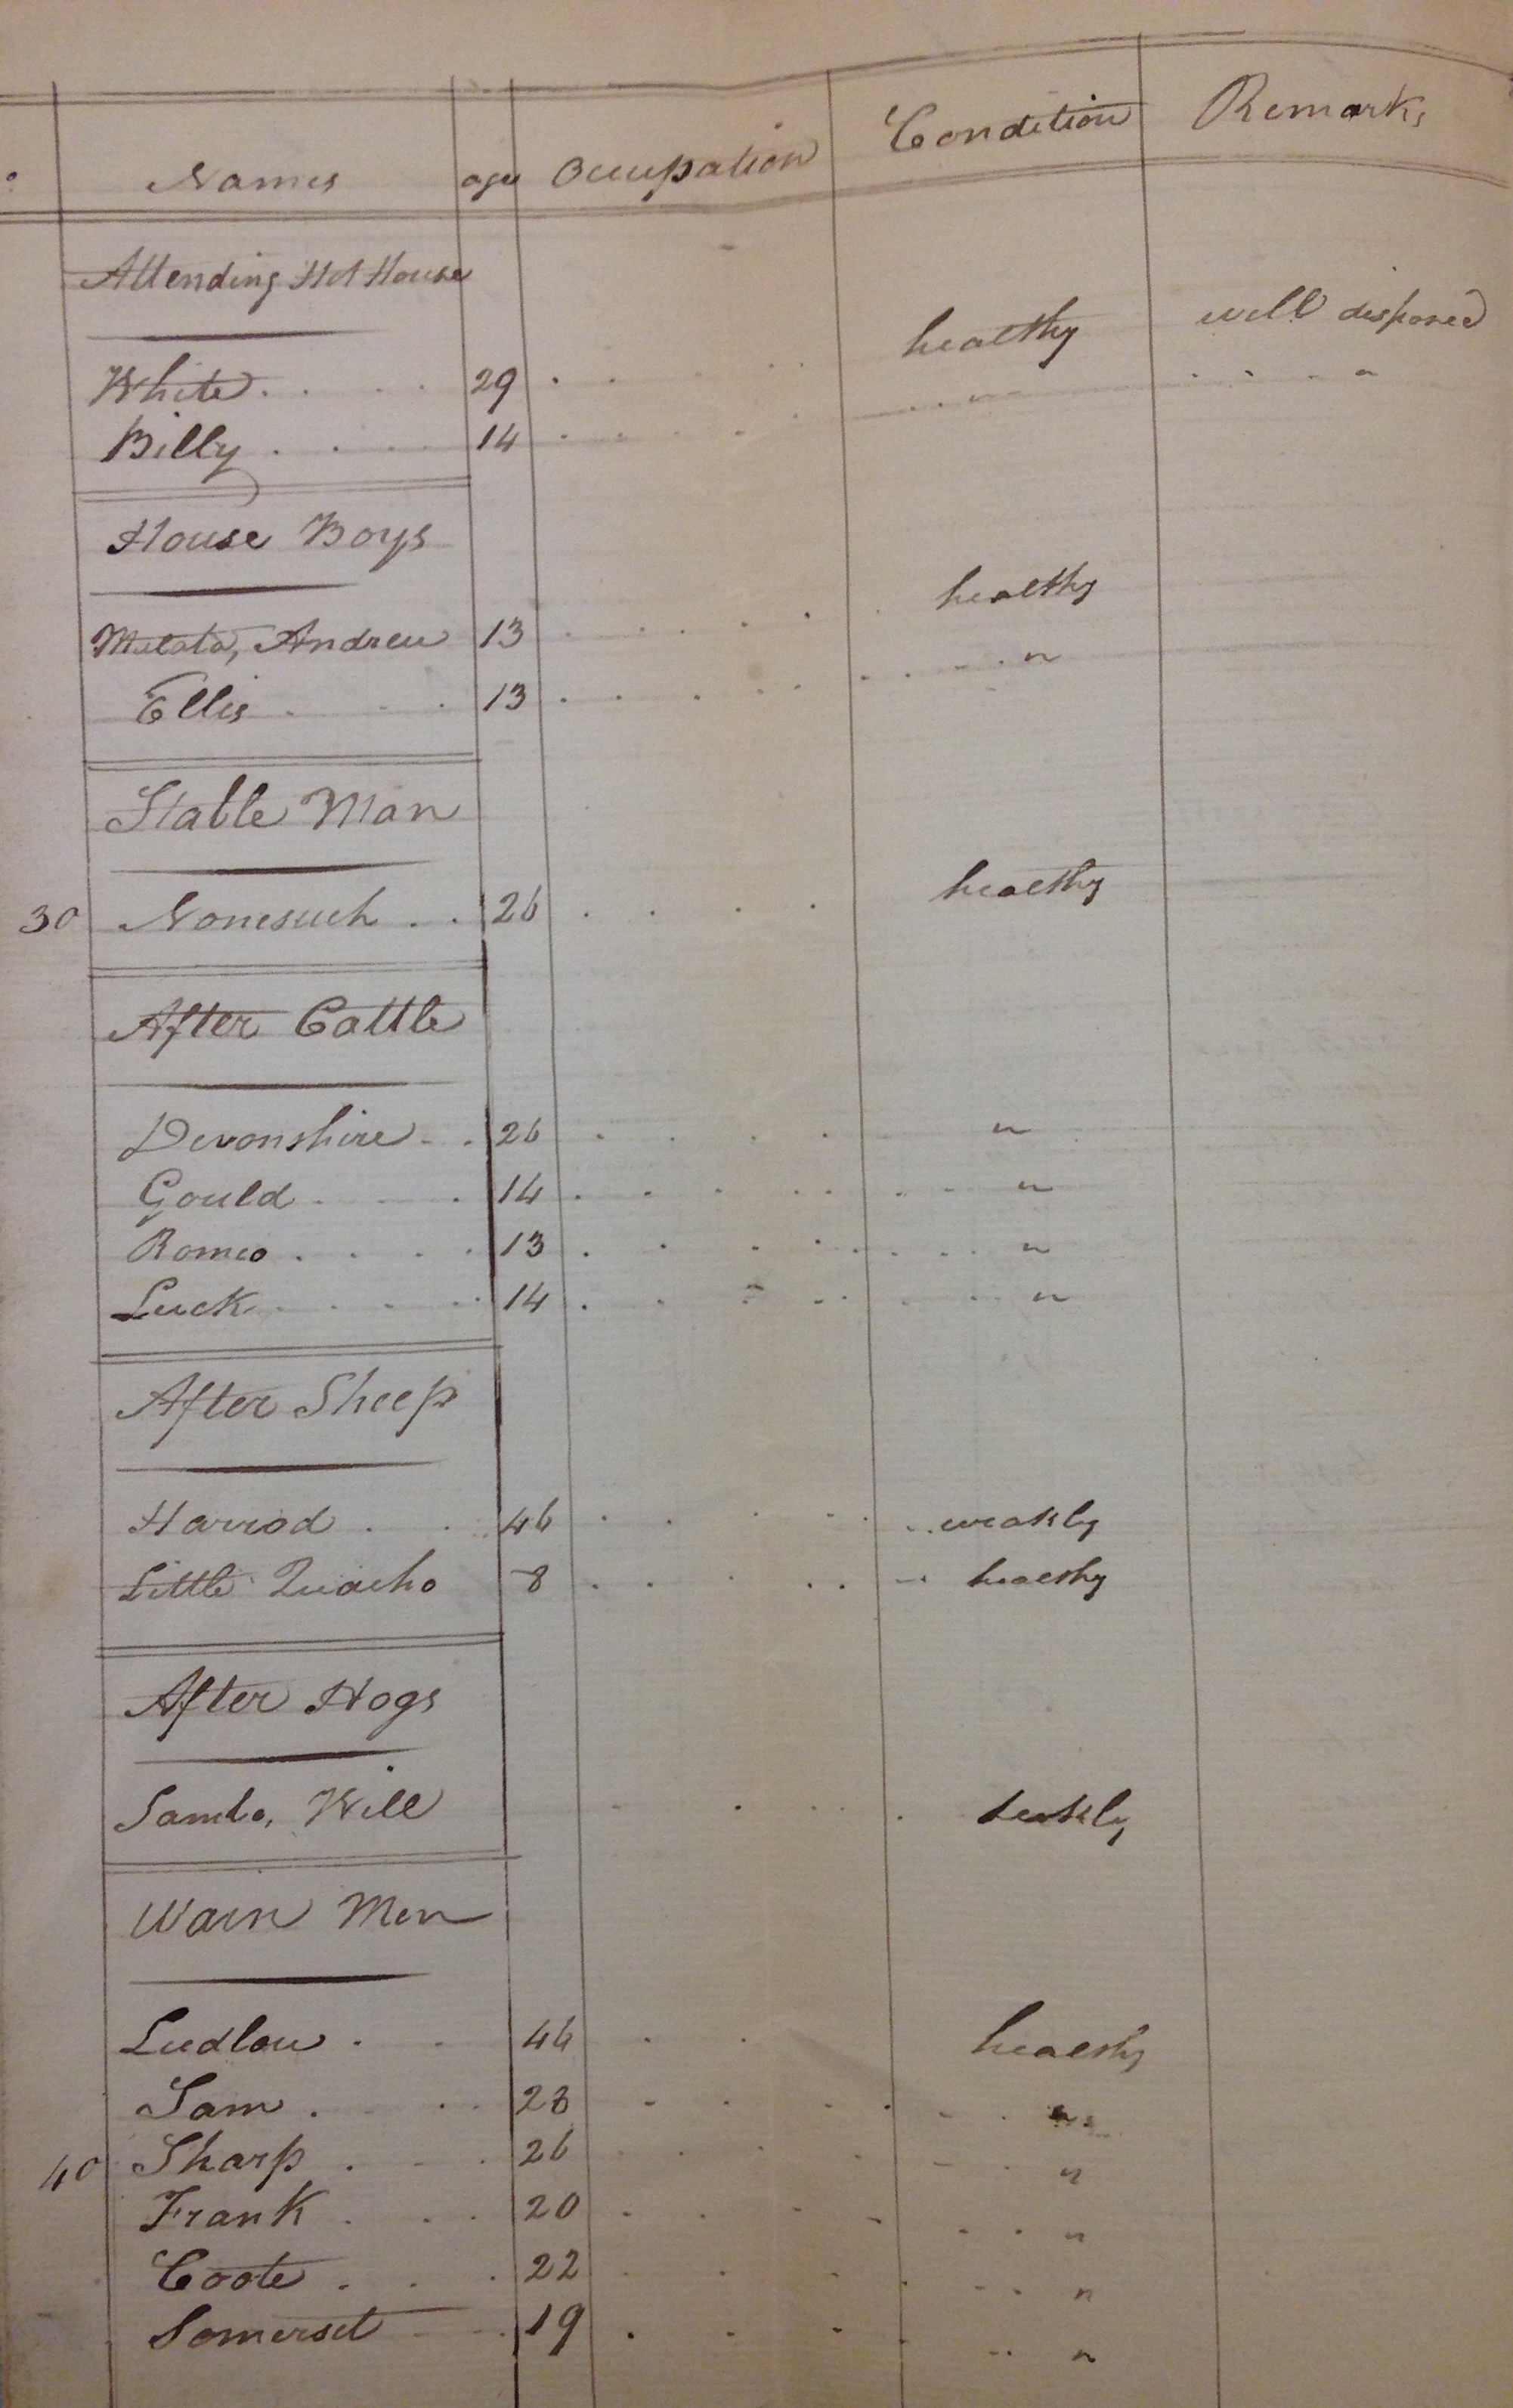 Names age Occupation Condition Remarks
Attending Hot House
White 29 healthy well disposed
Billy 14 " "
House Boys
Mulato, Andrew 13 healthy
Ellis 13 "
Stable Man
30 Nonesuch 26 healthy
After Cattle
Devonshire 26 "
Gould 14 "
Romeo 13 "
Luck 14 "
After Sheep
Harrod 46 weakly
Little Quacho 8 healthy
After Hogs
Sambo, Will weakly
Wain Men
Ludlow 44 healthy
Sam 28 "
40 Sharp 26 "
Frank 20 "
Coote 22 "
Somerset 19 "